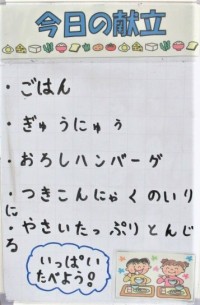 今日の献立
・ごはん
・ぎゅうにゅう
・おろしハンバーグ
・つきこんにゃくのいり
に
・やさいたっぷりとんじ
る
いっぱい
たべよう!